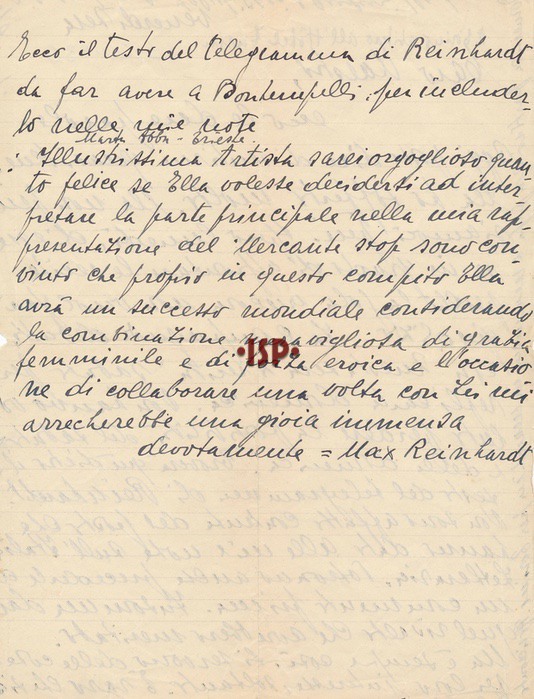 Ecco il testo del telegramma di Reinhardt
da far avere a Bontempelli per includer-
lo nelle mie note
Marta Abba - Trieste -
Illustrissima Artista sarei orgoglioso quan-
to felice se Ella volesse decidersi ad inter-
pretare la parte principale nella mia rap-
presentazione del Mercante stop sono con-
vinto che proprio in questo compito Ella
avrà un successo mondiale considerando
la combinazione meravigliosa di grazia
femminile e di forza eroica e l'occasio-
ne di collaborare una volta con Lei mi
arrecherebbe una gioia immensa
devotamente = Max Reinhardt
ISP